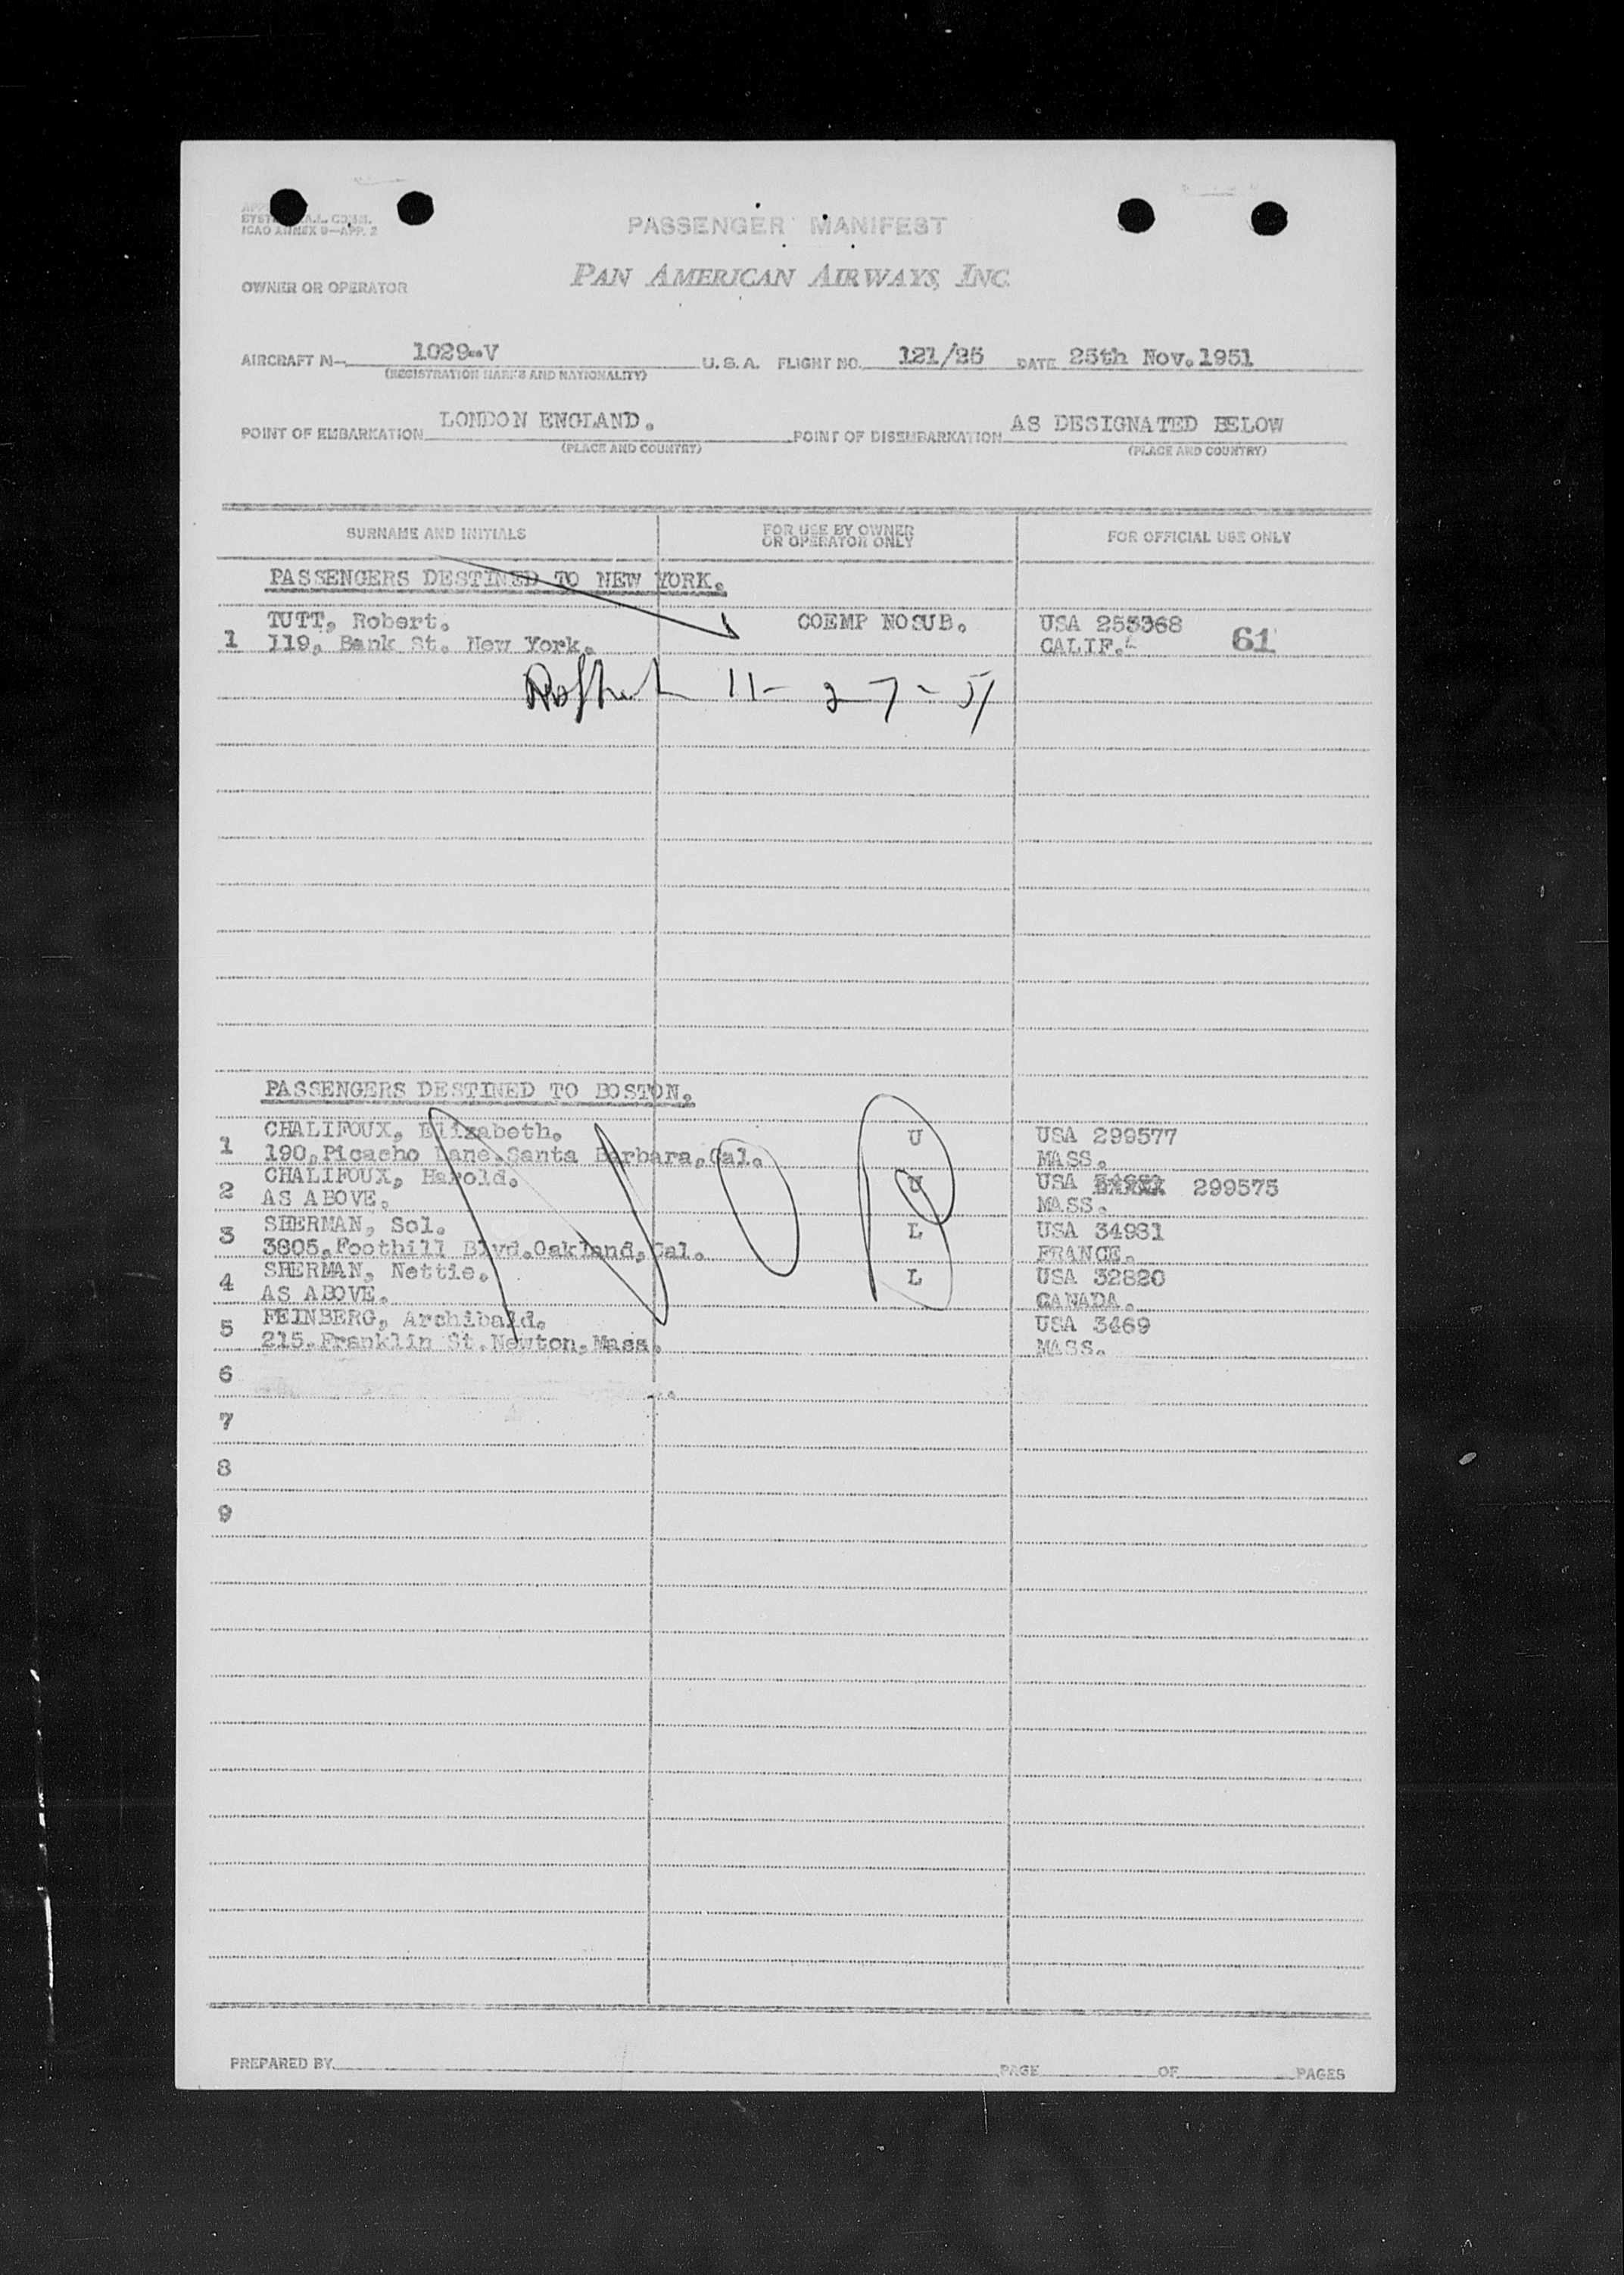 ICAO ANNEX 9—APP. 2
PASSENGER MANIFEST
PAN AMERICAN AIRWAYS, INC.
OWNER OR OPERATOR
AIRCRAFT N— 1029-V U.S.A. FLIGHT NO. 121/25 DATE 25th Nov. 1951
(REGISTRATION MARKS AND NATIONALITY)
POINT OF EMBARKATION LONDON ENGLAND. POINT OF DISEMBARKATION AS DESIGNATED BELOW
(PLACE AND COUNTRY) (PLACE AND COUNTRY)
SURNAME AND INITIALS FOR USE BY OWNER OR OPERATOR ONLY FOR OFFICIAL USE ONLY
PASSENGERS DESTINED TO NEW YORK.
TUTT, Robert. COEMP NOSUB. USA 255368
1 119, Bank St. New York. CALIF. 61
11-27-51
PASSENGERS DESTINED TO BOSTON.
CHALIFOUX, Elizabeth. U USA 299577
1 190,Picacho Lane.Santa Barbara,Cal. MASS.
CHALIFOUX, Harold. U USA 299575
2 AS ABOVE. MASS.
SHERMAN, Sol. L USA 34981
3 3805,Foothill Blvd.Oakland,Cal. FRANCE.
SHERMAN, Nettie. L USA 32820
4 AS ABOVE. CANADA.
FEINBERG, Archibald. USA 3469
5 215.Franklin St.Newton,Mass. MASS.
6
7
8
9
PREPARED BY PAGE OF PAGES